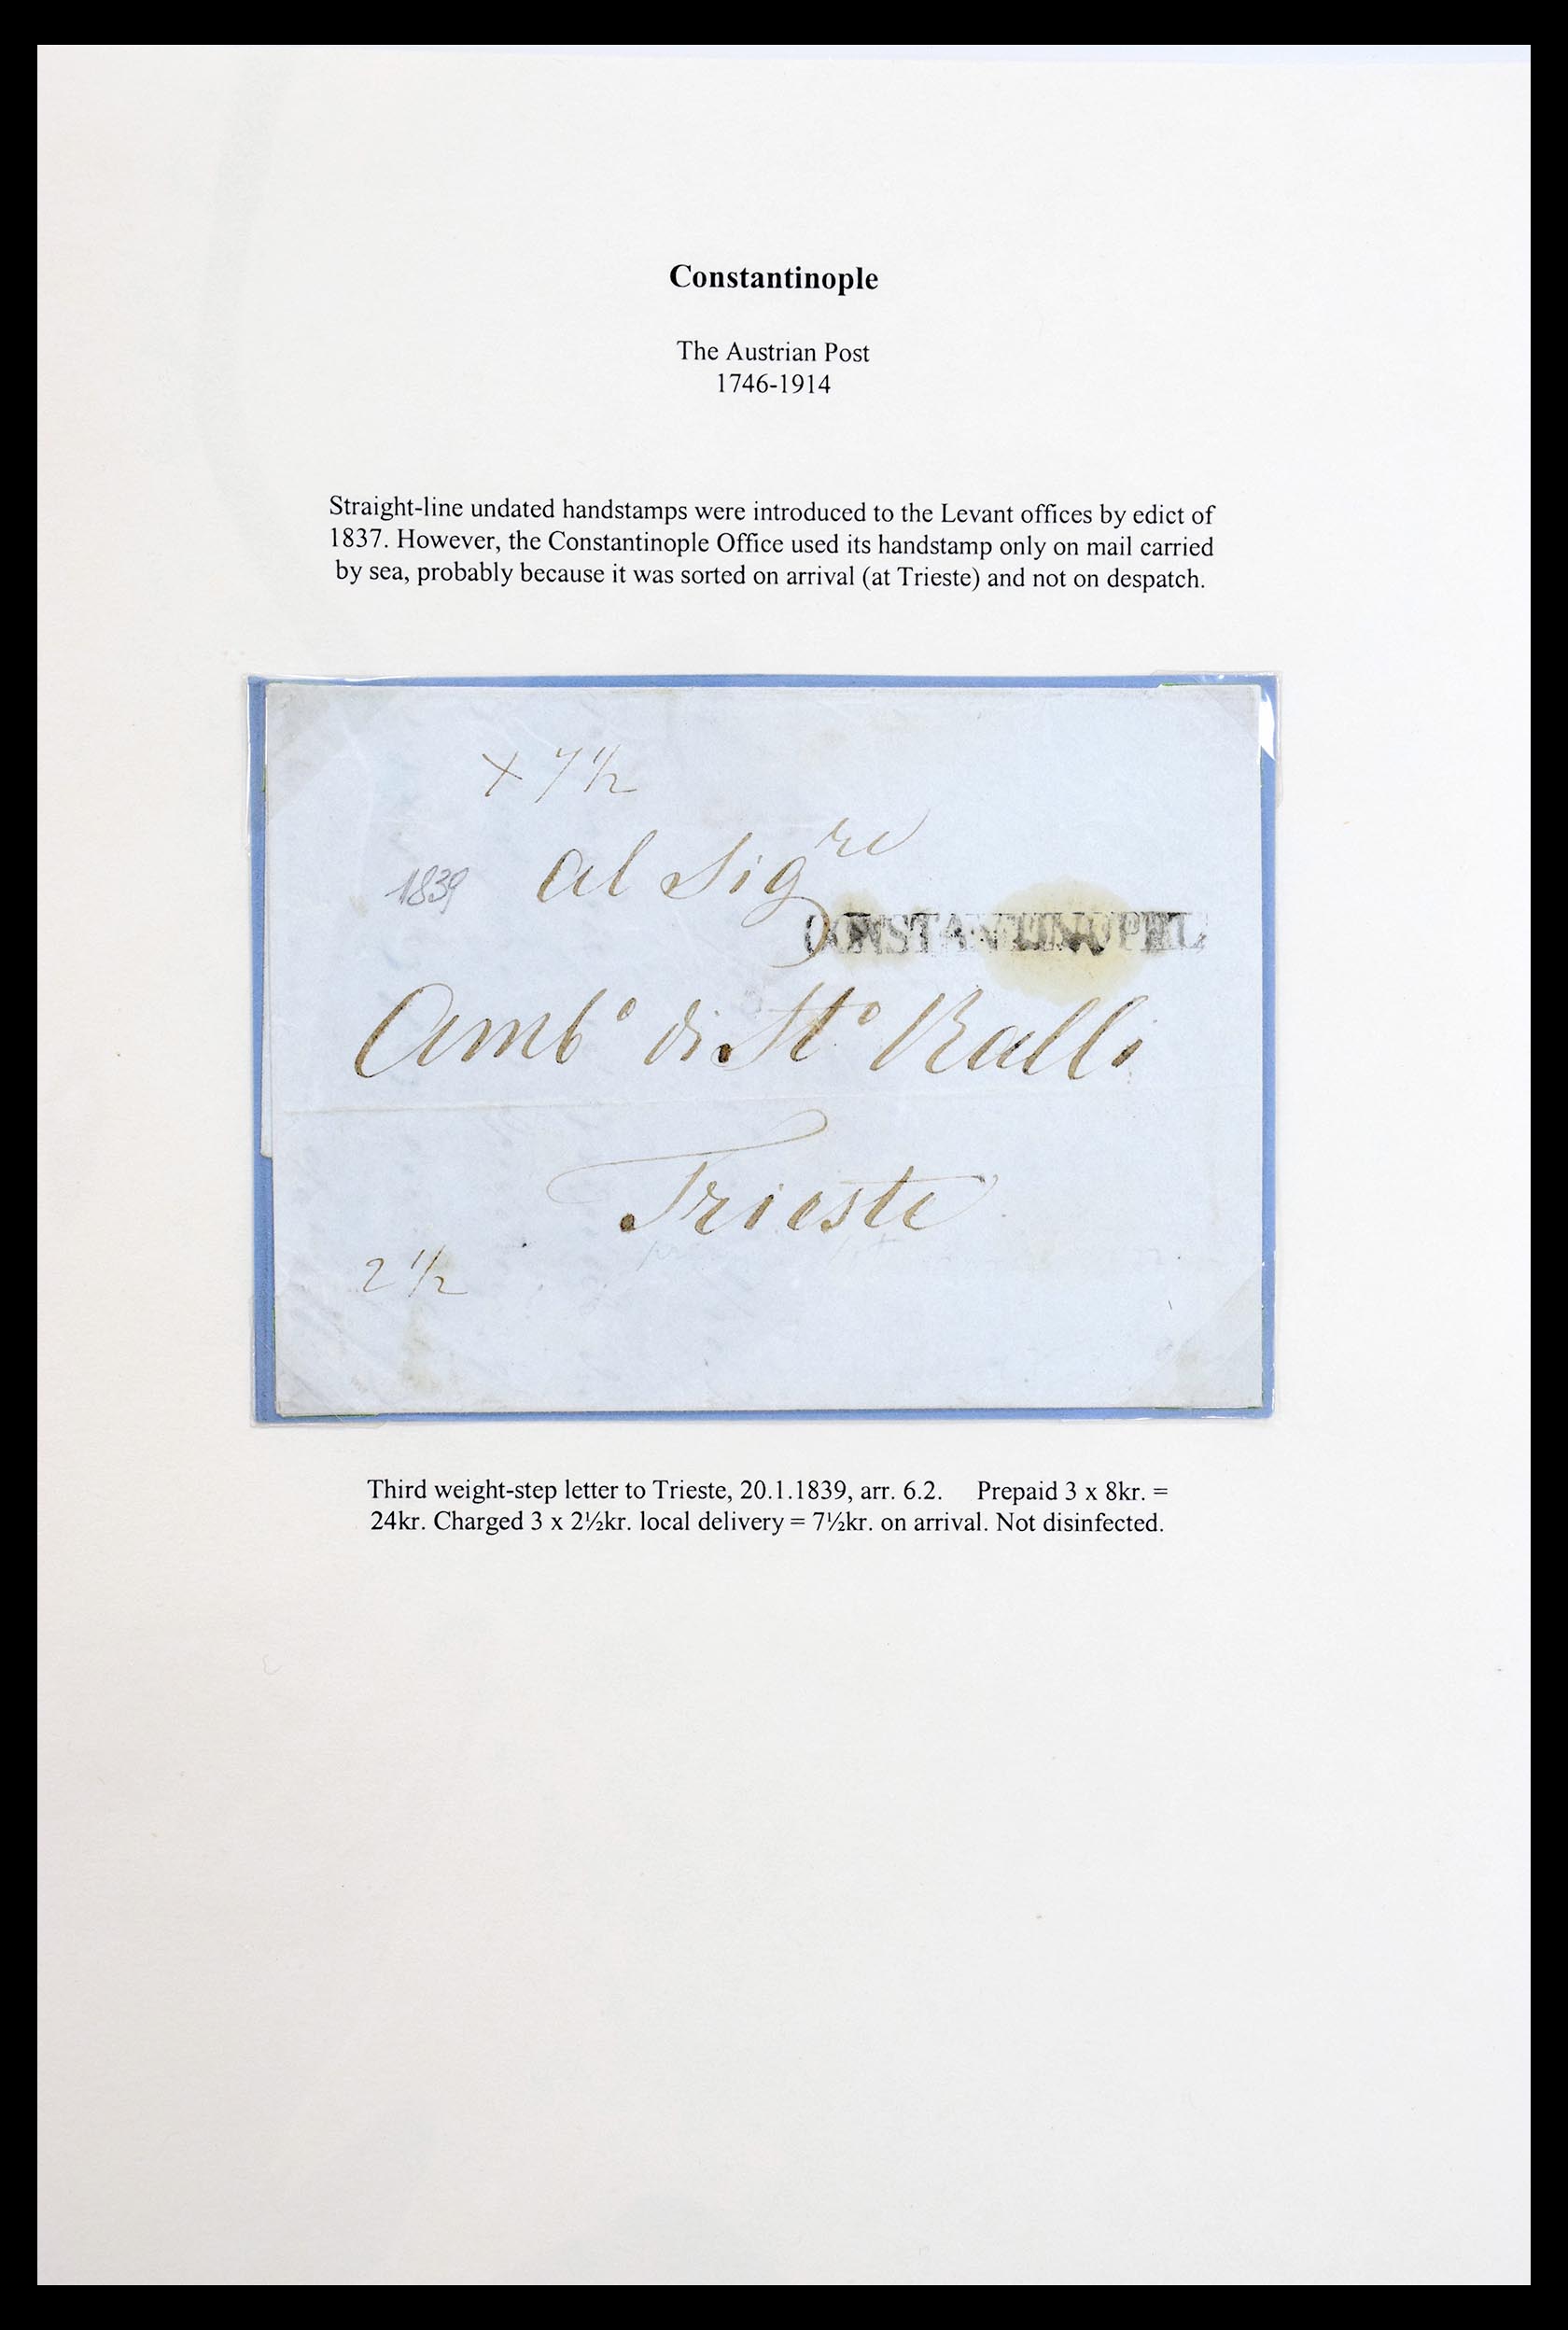 Constantinople
The Austrian Post
1746-1914
Straight-line undated handstamps were introduced to the Levant offices by edict of
1837. However, the Constantinople Office used its handstamp only on mail carried
by sea, probably because it was sorted on arrival (at Trieste) and not on despatch.
x 7 1/2
al Sigre
1839
CONSTANTINOPEL
Ambo di Sto Ralli
Trieste
2 1/2
Third weight-step letter to Trieste, 20.1.1839, arr. 6.2. Prepaid 3 x 8kr. =
24kr. Charged 3 x 2½kr. local delivery = 7½kr. on arrival. Not disinfected.